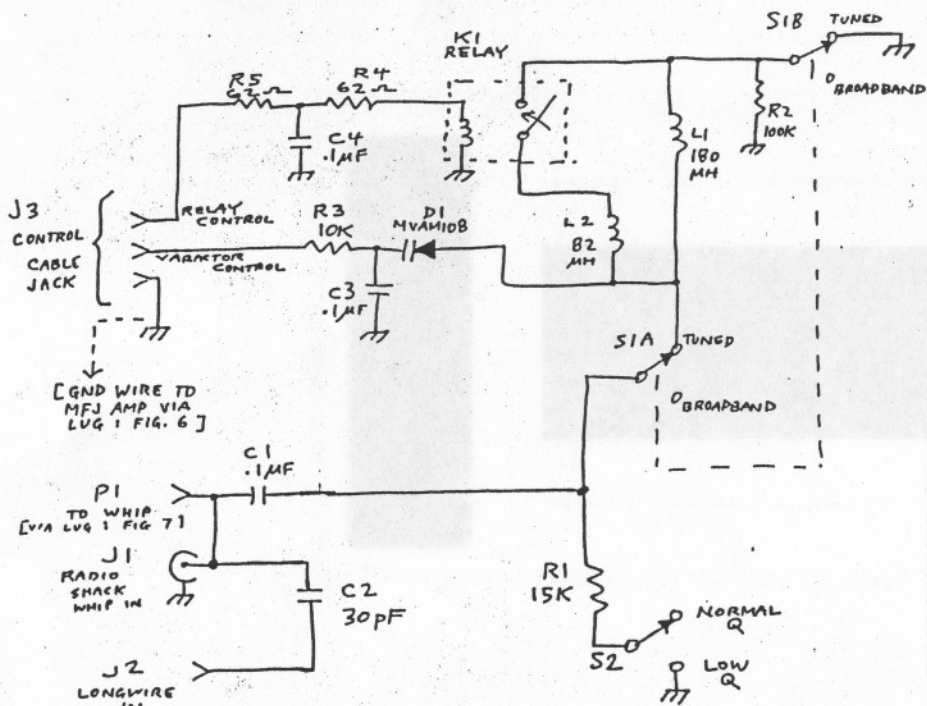 S1B
TUNED
BROADBAND
K1
RELAY
R5
62Ω
R4
62Ω
C4
.1µF
R2
100K
L1
180
µH
J3
CONTROL
CABLE
JACK
RELAY
CONTROL
VARACTOR
CONTROL
R3
10K
D1
MVAM108
C3
.1µF
L2
82
µH
S1A
TUNED
BROADBAND
[GND WIRE TO
MFJ AMP VIA
LUG : FIG. 6]
C1
.1µF
P1
TO WHIP
[VIA LUG : FIG 7]
J1
RADIO
SHACK
WHIP IN
C2
30pF
R1
15K
NORMAL
Q
S2
LOW
Q
J2
LONGWIRE